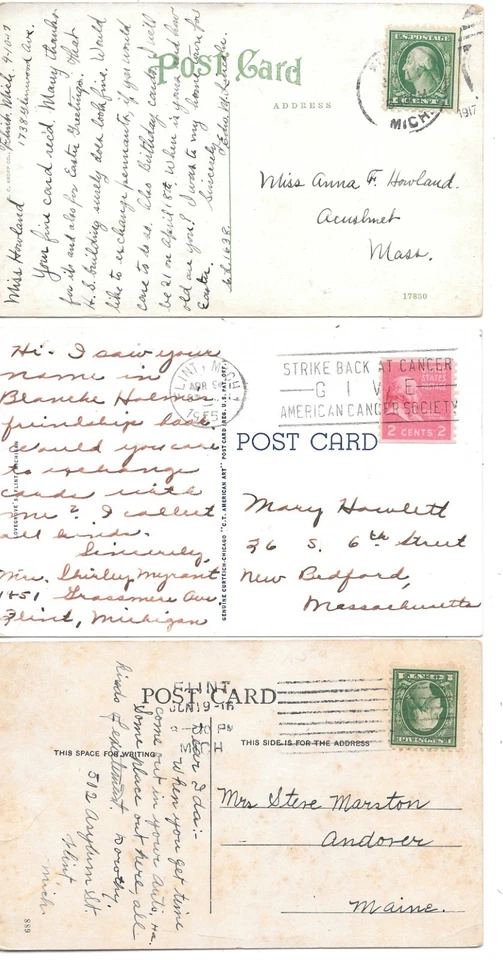 Post Card
ADDRESS
U.S.POSTAGE
1 CENT 1
MICH.
1917
Miss Anna F. Howland.
Acushnet
Mass.
17830
Flint, Mich. 4-10-17
1738 Glenwood Ave.
Miss Howland
Your fine card recd. Many thanks
for its and also for Easter Greetings. That
H.S. building surely does look fine. Would
like to exchange pennants, if you would
care to do so. Also Birthday cards. I will
be 21 on April 18th. When is yours and how
old are you? I was to my home town for
Easter.
Sincerely,
Hi - I saw your
name in
Blanche Holmen
friendship book.
Would you care
to exchange
cards with
me? I collect
all kinds.
Sincerely,
Mrs. Shirley Mygrant
1451 Grassmere Ave
Flint, Michigan
LOVEGROVE'S FLINT, MICHIGAN
GENUINE CURTEICH-CHICAGO "C.T. AMERICAN ART" POST CARD (REG. U.S. PAT. OFF.)
FLINT, MICH
APR
STRIKE BACK AT CANCER
GIVE
AMERICAN CANCER SOCIETY
STATES
2 CENTS 2
POST CARD
Mary Howlett
36 S. 6th Street
New Bedford,
Massachusetts
POST CARD
FLINT
MICH
THIS SPACE FOR WRITING
THIS SIDE IS FOR THE ADDRESS
Dear Ida:-
When you get time
come out in your auto, Ha.
Some place out here, all
kinds of excitement
Dorothy.
512
St.
Flint
Mich.
Mrs Steve Marston
Andover
Maine.
889